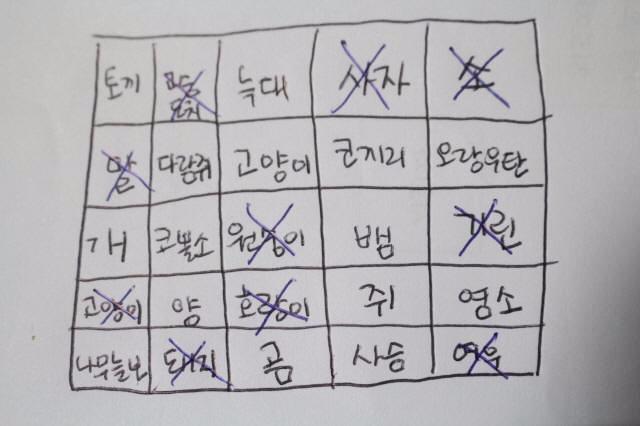 토끼 고슴도치 늑대 사자 소
말 다람쥐 고양이 코끼리 오랑우탄
개 코뿔소 원숭이 뱀 기린
고양이 양 호랑이 쥐 염소
나무늘보 돼지 곰 사슴 여우